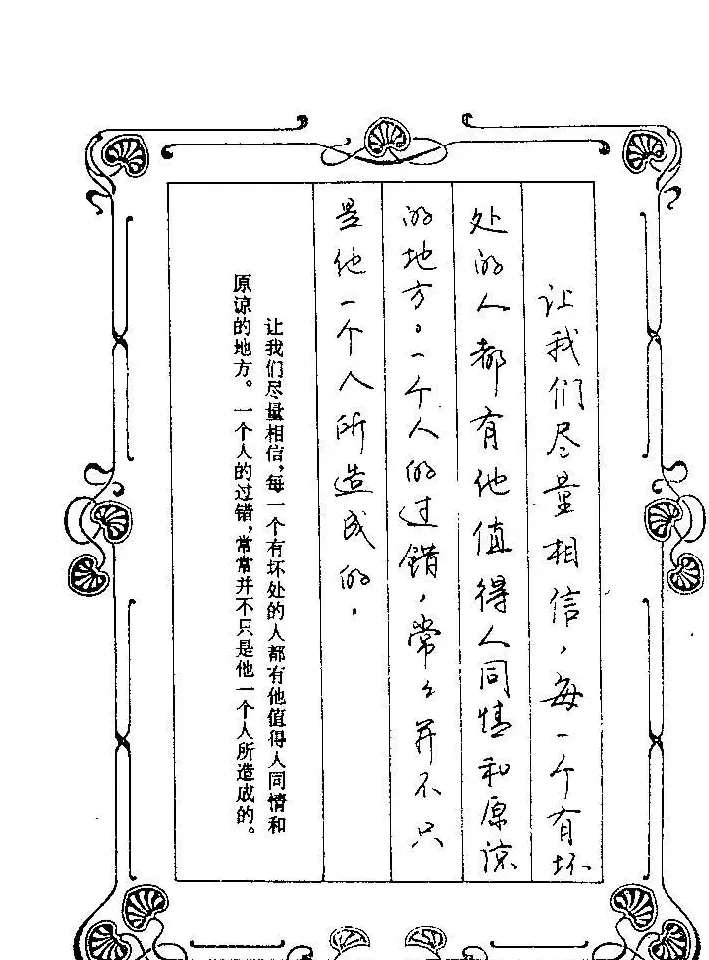 让我们尽量相信，每一个有坏
处的人都有他值得人同情和原谅
的地方。一个人的过错，常々并不只
是他一个人所造成的．
让我们尽量相信，每一个有坏处的人都有他值得人同情和
原谅的地方。一个人的过错，常常并不只是他一个人所造成的。